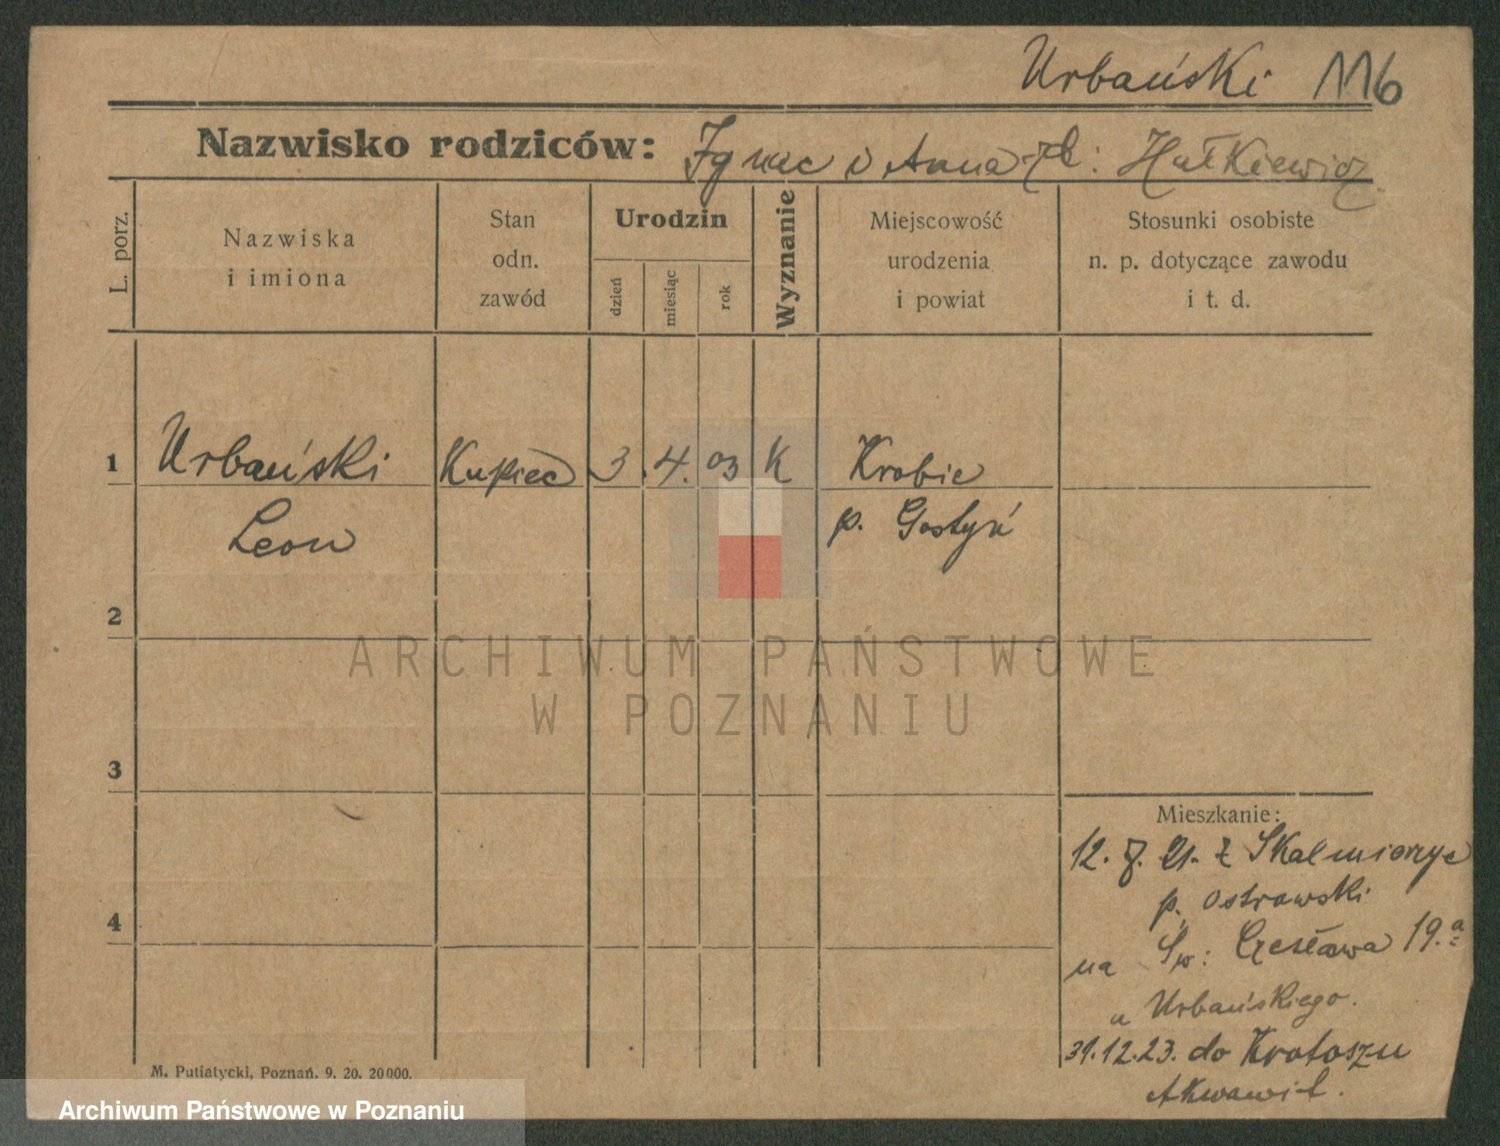 Urbański 116
Nazwisko rodziców: Ignac i Anna zd: Hałkiewicz
L. porz.
Nazwiska
i imiona
Stan
odn.
zawód
Urodzin
dzień
miesiąc
rok
Wyznanie
Miejscowość
urodzenia
i powiat
Stosunki osobiste
n. p. dotyczące zawodu
i t. d.
1 Urbański Kupiec 3. 4. 03 K Krobie
Leon p. Gostyń
2
3
4
Mieszkanie:
12. 21. z Skalmierzyc
p. Ostrowski
na Św: Czesława 19.a
u Urbańskiego.
31.12.23. do Krotoszu
Akwawit.
M. Putiatycki, Poznań. 9. 20. 20 000.
ARCHIWUM PAŃSTWOWE
W POZNANIU
Archiwum Państwowe w Poznaniu